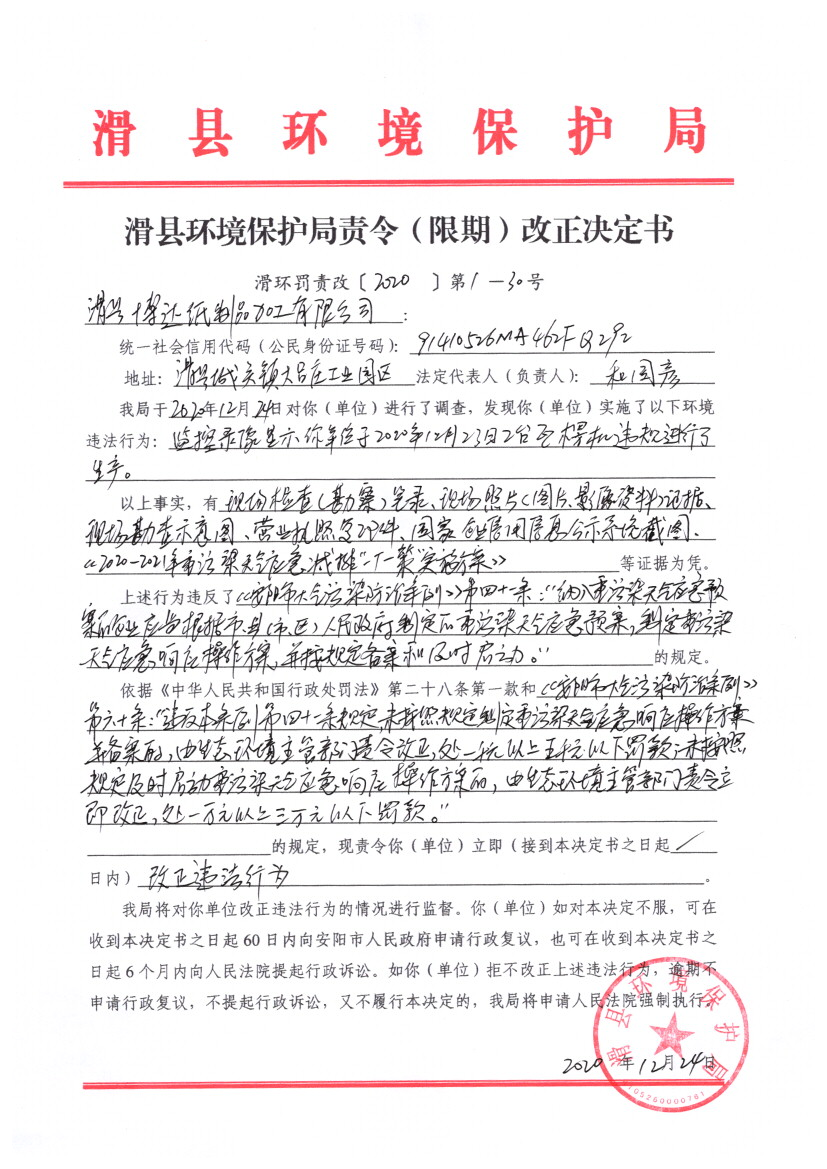 滑县环境保护局
滑县环境保护局责令（限期）改正决定书
滑环罚责改〔2020 〕第1－30号
滑县博达纸制品加工有限公司：
统一社会信用代码（公民身份证号码）：91410526MA462FQ292
地址：滑县城关镇大吕庄工业园区 法定代表人（负责人）：和国彦
我局于2020年12月24日对你（单位）进行了调查，发现你（单位）实施了以下环境
违法行为：监控录像显示你单位于2020年12月23日2台 机违规进行了
生产。
以上事实，有现场检查（勘察）笔录、现场照片（图片、影像资料）证据、
现场勘查示意图、营业执照复印件、国家企业信用信息公示系统截图、
《2020-2021年重污染天气应急减排“一厂一策”实施方案》等证据为凭。
上述行为违反了《安阳市大气污染防治条例》第四十一条：“纳入重污染天气应急预
案的企业应当根据市、县（市、区）人民政府制定的重污染天气应急预案，制定重污染
天气应急响应操作方案，并按规定备案和及时启动。”的规定。
依据《中华人民共和国行政处罚法》第二十八条第一款和《安阳市大气污染防治条例》
第六十条：“违反本条例第四十一条规定，未按照规定制定重污染天气应急响应操作方案
并备案的，由生态环境主管部门责令改正，处一千元以上五千元以下罚款；未按照
规定及时启动重污染天气应急响应操作方案的，由生态环境主管部门责令立
即改正，处一万元以上三万元以下罚款。”
的规定，现责令你（单位）立即（接到本决定书之日起／
日内）改正违法行为。
我局将对你单位改正违法行为的情况进行监督。你（单位）如对本决定不服，可在
收到本决定书之日起60日内向安阳市人民政府申请行政复议，也可在收到本决定书之
日起6个月内向人民法院提起行政诉讼。如你（单位）拒不改正上述违法行为，逾期不
申请行政复议，不提起行政诉讼，又不履行本决定的，我局将申请人民法院强制执行。
滑县环境保护局
2020年12月24日
4105260000761